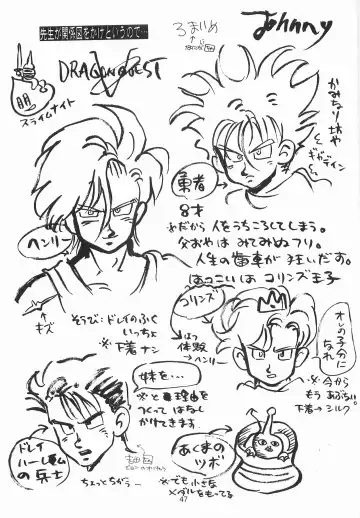 先生が関係図をかけというので…
3まいめ
Johnny
DRAGON QUEST V
スライムナイト
かみなり坊や
ギガデイン
ヘンリー
勇者
8才
※だから 人をうちころしてしまう。
父おやは みてみぬフリ。
人生の歯車が 狂いだす。
はつこいは コリンズ王子
キズ
そうび:ドレイのふく
いっちょ
※下着ナシ
コリンズ
はつ
体験
→ヘンリー
オレの子分に
なれ
※今から
もう あぶない。
下着→シルク
妹を…
※と 理由を
つくって はなし
かけてきます。
ドレイ
ハーレムの
兵士
ちょっとちがう…
あくまの
ツボ
※でも小さな
メダルをもってる
47